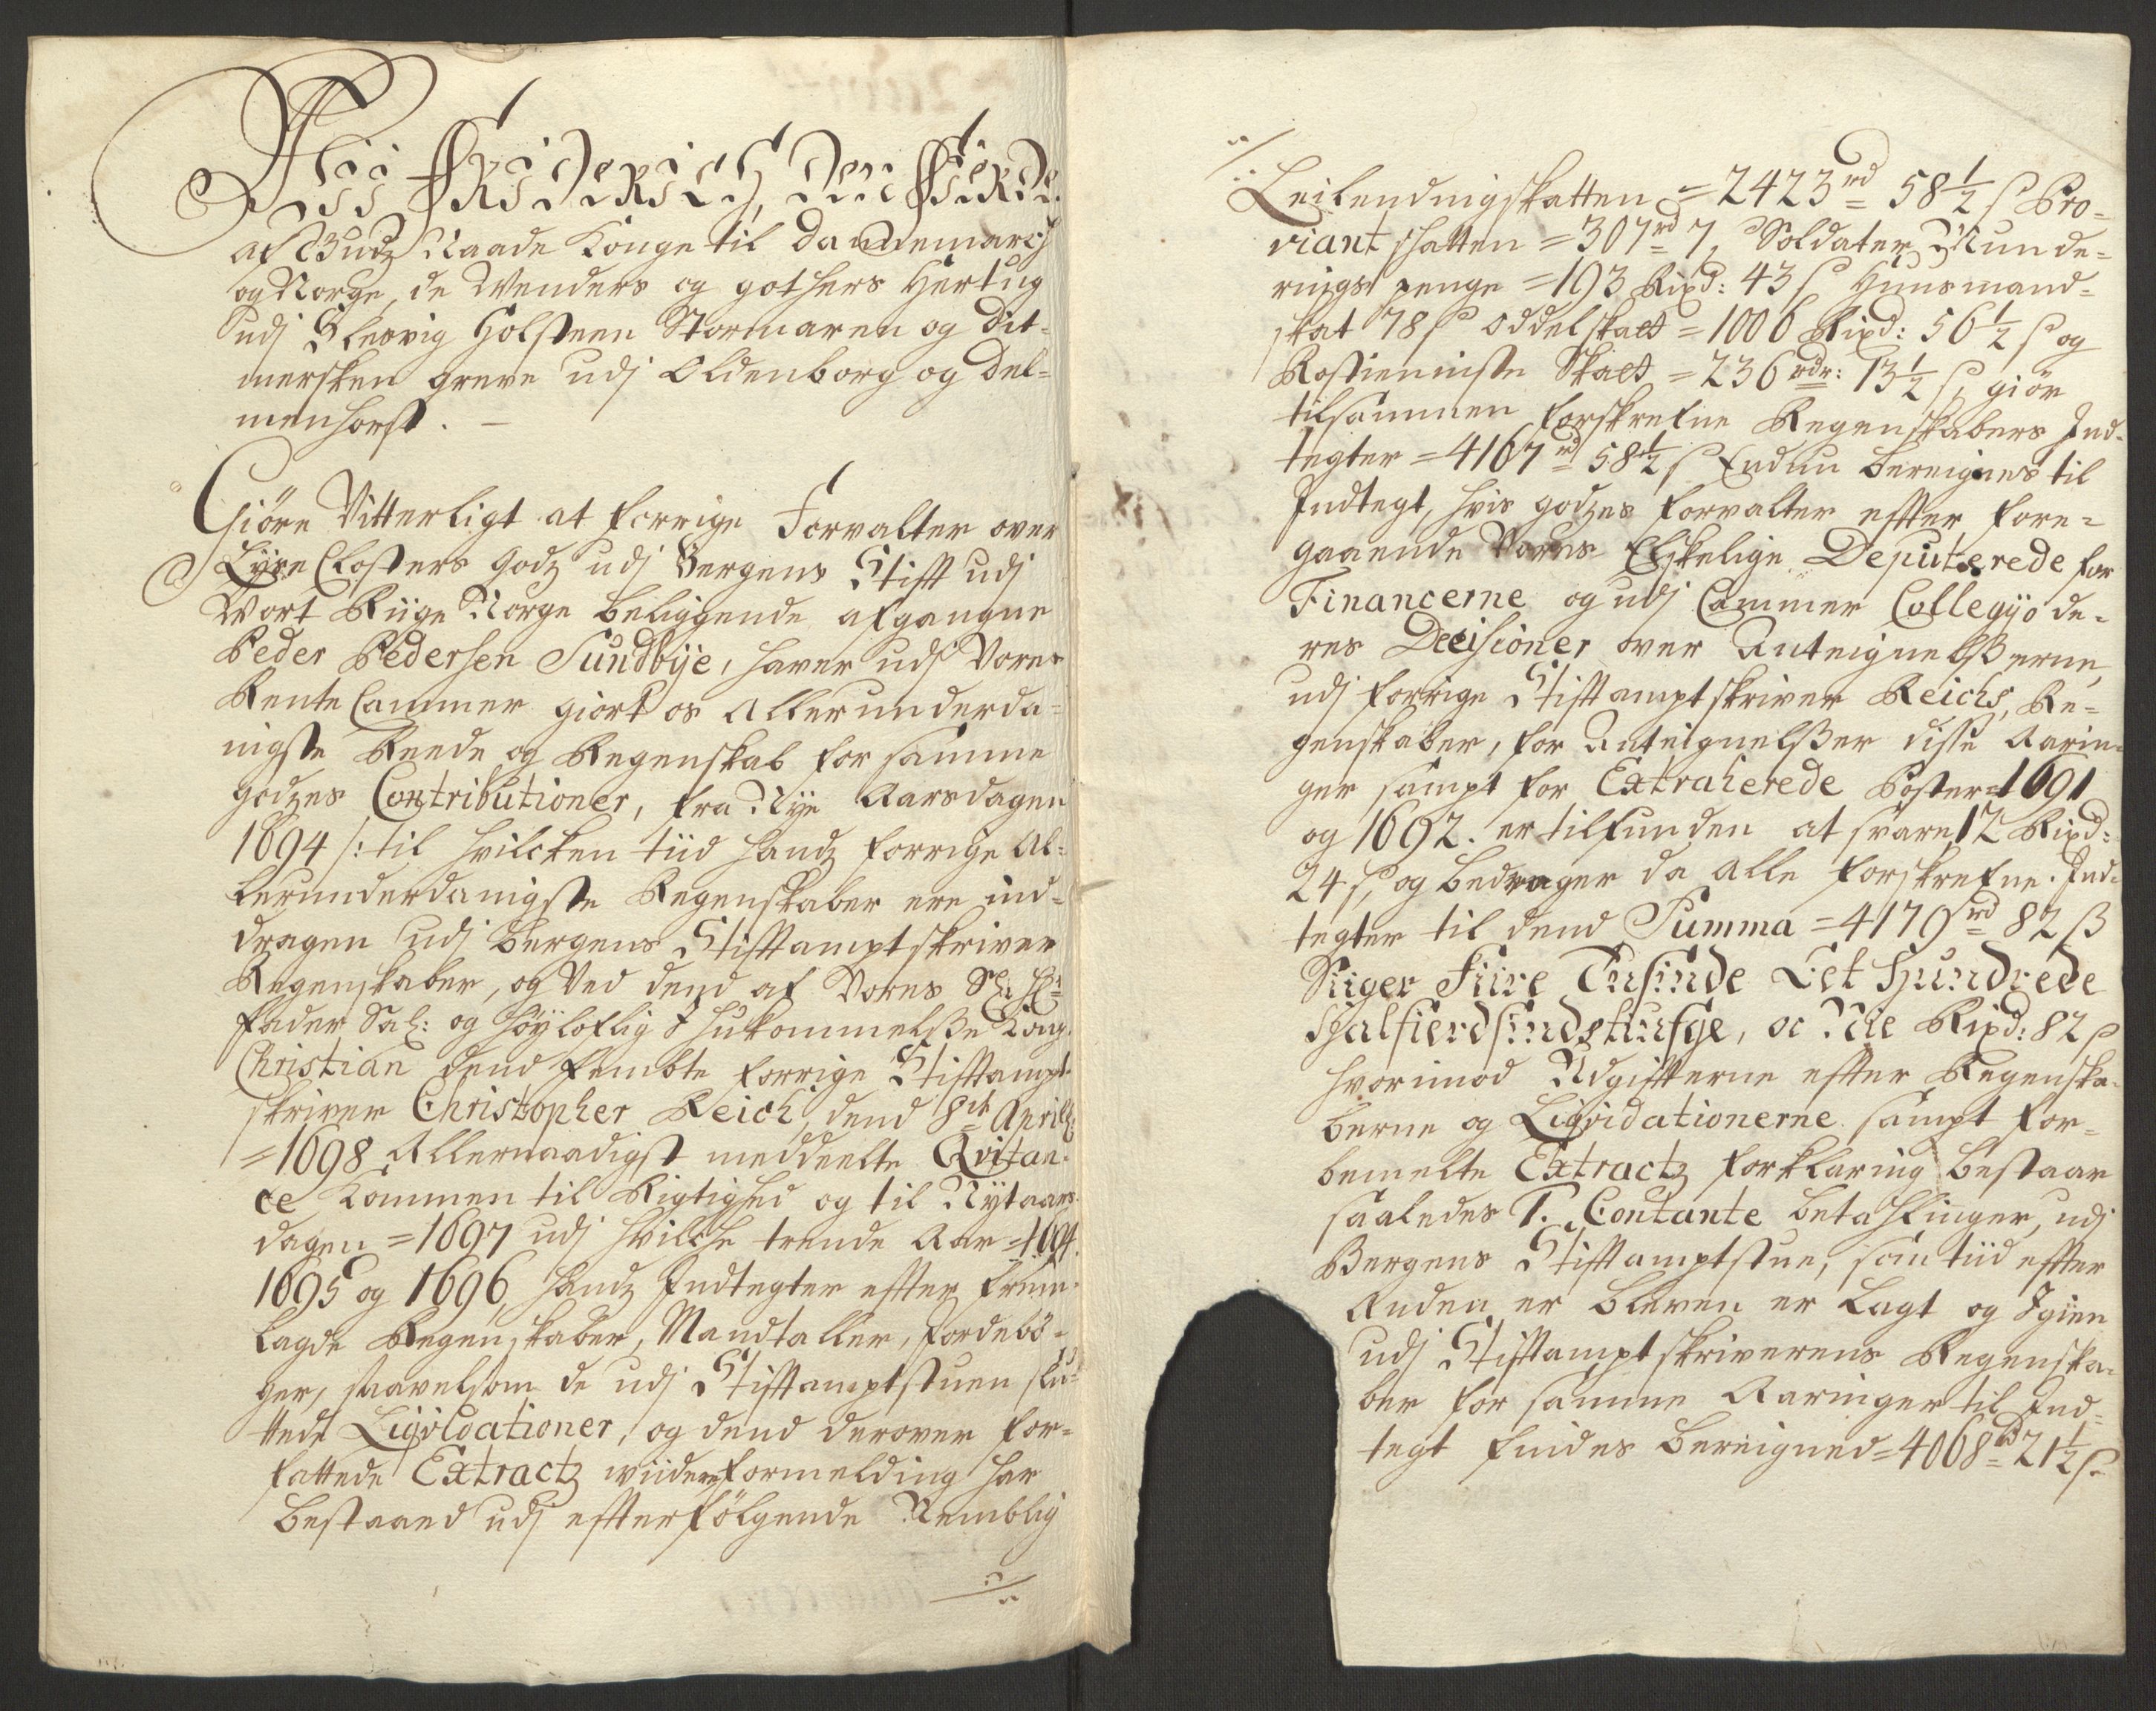 Wii Friderich, Den Fierde
af Gudz Naade Konge til Dannemarch
og Norge, de Wenders og gothers Hertug
udj Slesvig Holsteen Stormaren og Dit-
mersken greve udj Oldenborg og Del-
menhorst. –
Giöre Vitterligt at forrige Forvalter over
Lyse Closters godz udj Bergens Stift udj
Wort Riige Norge beliggende afgangne
Peder Pedersen Sundbÿe, haver udj Vores
Rente Cammer giort os Allerunderda-
nigste Reede og Regenskab for samme
godzes Contributioner, fra Nye Aarsdagen
1694 /: til hvilcken tiid handz forrige Al-
lerunderdanigste Regenskaber ere ind-
dragen udj Bergens Stiftamptskriver
Regenskaber, og Ved dend af Vores Sl: Hr
fader Sal: og höyloflig Ihukommelsse Kong
Christian dend fembte forrige Stiftampt-
skriver Christopher Reich, dend 8de Aprill:
=1698 Allernaadigst meddeelte Qvitan-
ce kommen til Rigtighed og til Nytaars-
dagen =1697 udj hvilche trende Aar =1694.
1695 og 1696, handz Indtegter efter frem-
lagde Regenskaber, Mandtaller, Jordebö-
ger, saavelsom de udj Stiftamptstuen slut-
tede Liqvidationer, og dend derover for-
fattede Extractz wiidere formelding har
bestaaed udj efterfölgende Nemblig
./.
./.
Leilendingskatten =2423rd 58½ s Pro-
viant skatten =307rd 7, Soldater Munde-
rings penge =193 Rixd: 43 s Huusmand-
skat 78 s Oddelskaet =1006 Rixd: 56½ s og
Rostieniste Skaet =236rdr: 13½ s, giör
tilsammen forskrefne Regenskabers Ind-
tegter =4167rd 58½ s Endnu bereignes til
Indtegt, hvis godzes forvalter efter fore-
gaaende Vores Elskelige Deputerede for
Financerne og udj Cammer Collegyo de-
res Decisioner over Anteignelsserne,
udj forrige Stiftamptskriver Reichs, Re-
genskaber, for Anteignelsser disse Aarin-
ger sampt for Extraherede Poster =1691
og 1692. er tilfunden at svare, 12 Rixd:
24 s, og bedrager da alle forskrefne Ind-
tegter til dend Summa =4179rd 82 ß
Siiger Fiire Tusinde Eet Hundrede
Halfierdsindstiufge, oc Nie Rixd: 82 s
hvorimod Udgifterne efter Regenska-
berne og Liqvidationerne sampt for-
bemelte Extractz forklaring bestaar
saaledes T. Contante betahlinger, udj
Bergens Stiftamptstue, som tiid efter
Anden er bleven er lagt og Igien
udj Stiftamptskriverens Regenska-
ber for samme Aaringer til Ind-
tegt findes bereigned =4068rd 21½ s